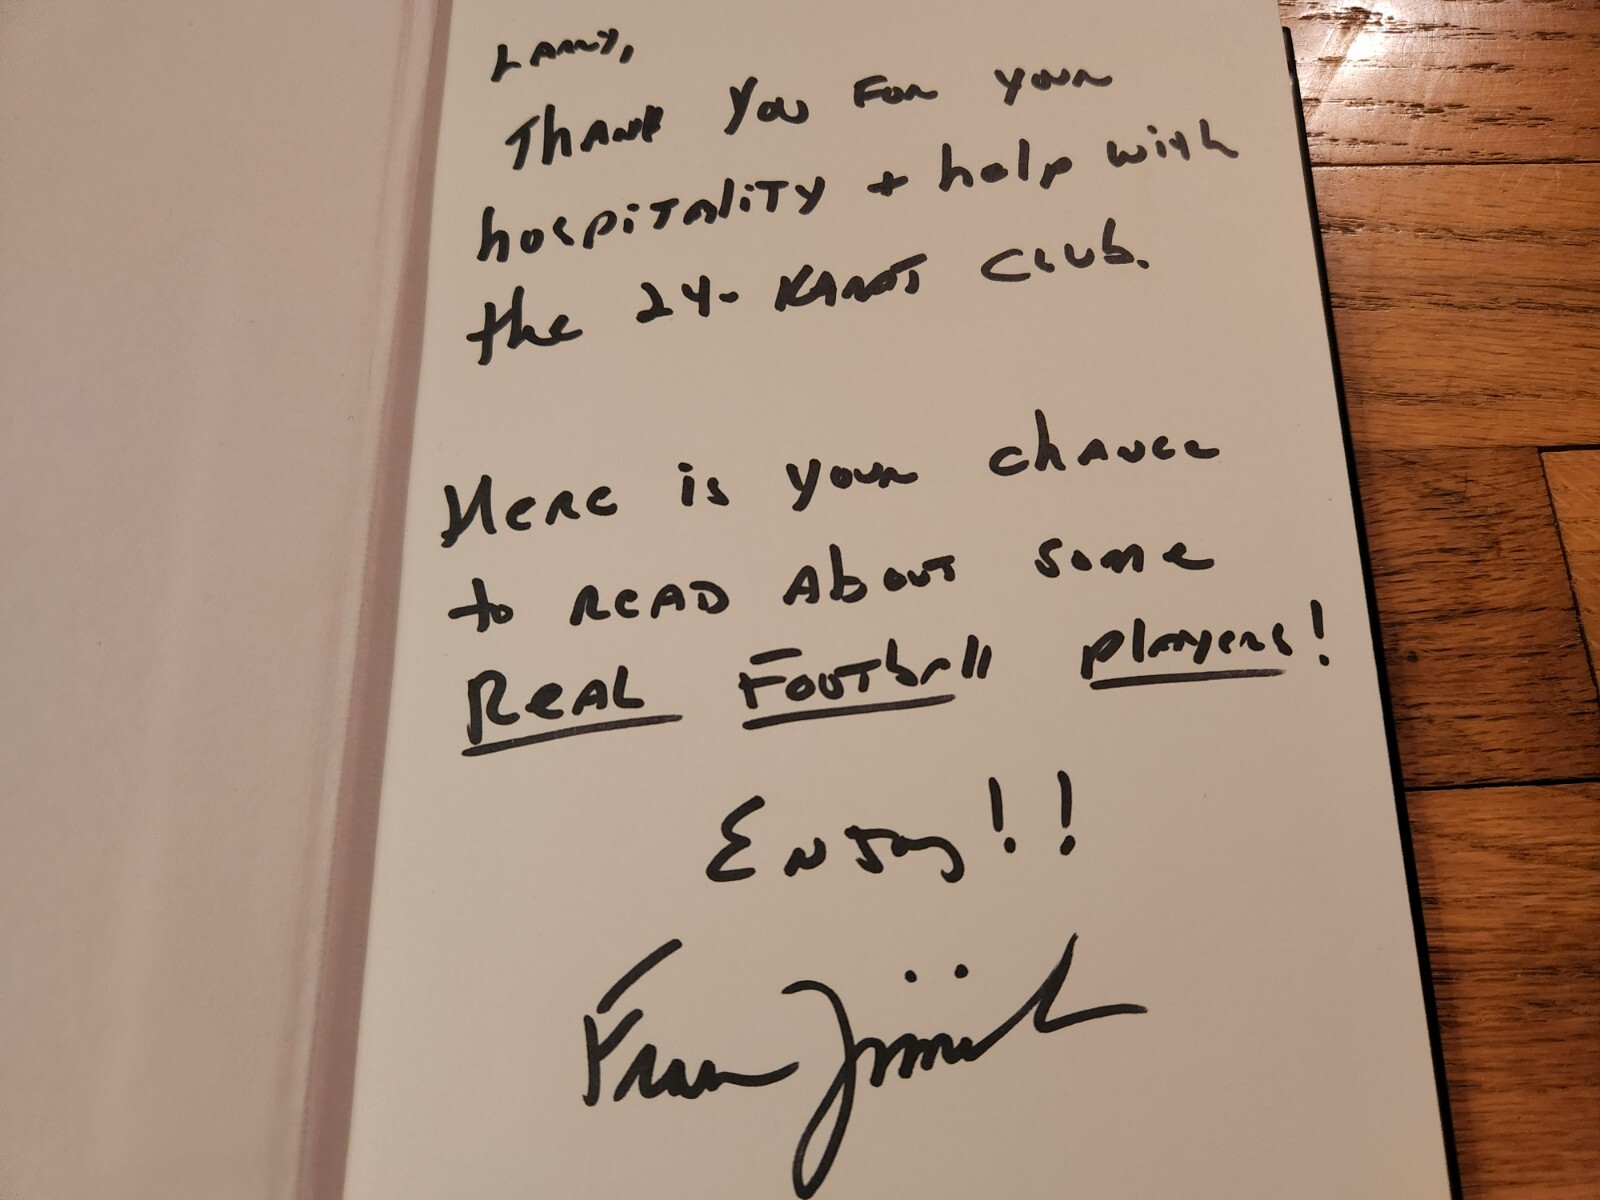 Larry,
Thank you for your
hospitality + help with
the 24-Karat Club.
Here is your chance
to read about some
Real Football players!
Enjoy!!
Fran